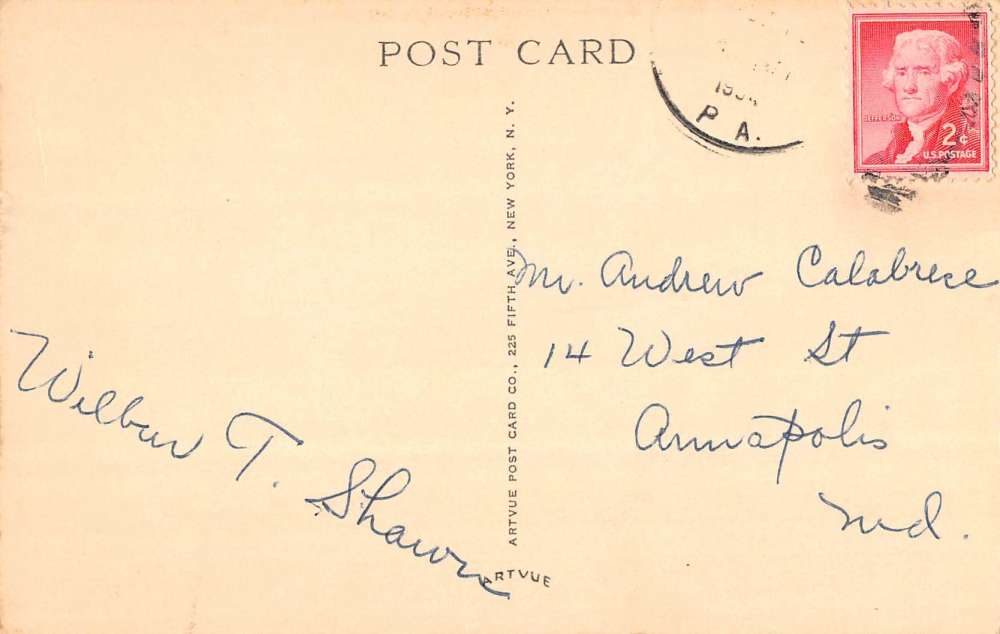 POST CARD
P A.
JEFFERSON
2¢
U.S. POSTAGE
ARTVUE POST CARD CO., 225 FIFTH AVE., NEW YORK, N. Y.
Mr. Andrew Calabrese
14 West St
Annapolis
Md.
Wilbur T. Shawn
ARTVUE